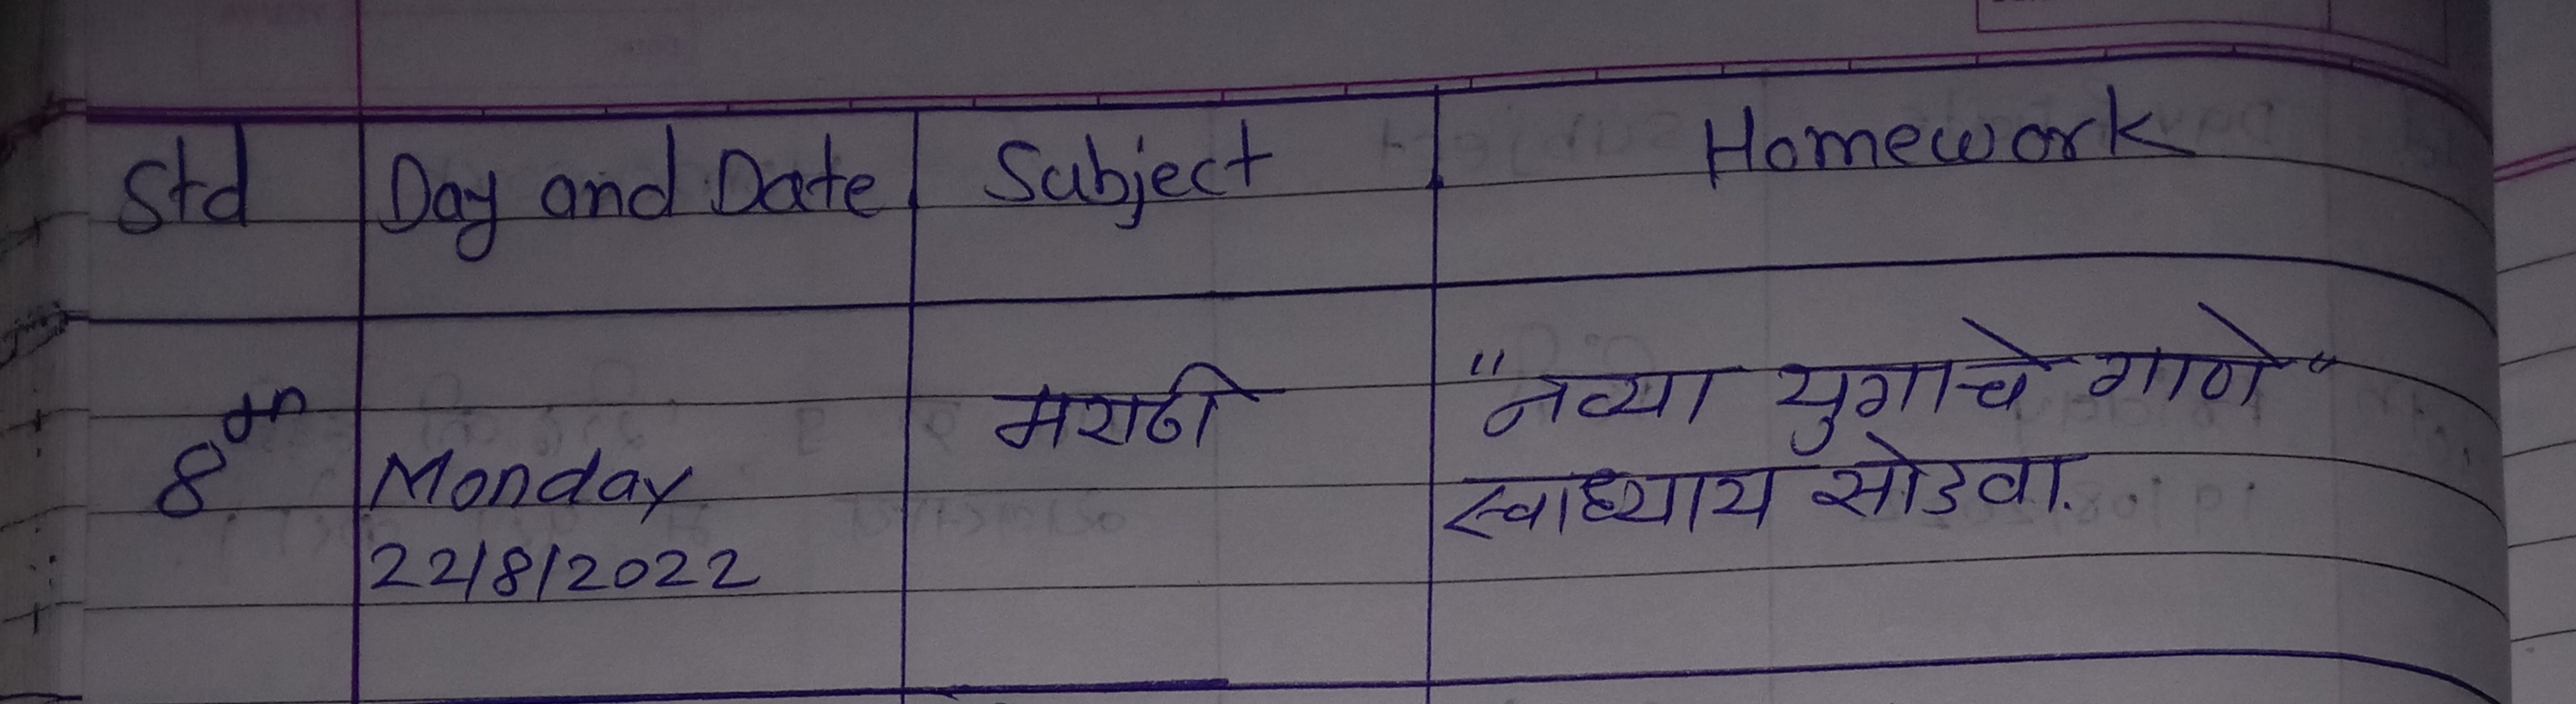 Std Day and Date Subject Homework
8th Monday मराठी "नव्या युगाचे गाणे"
22/8/2022 स्वाध्याय सोडवा.